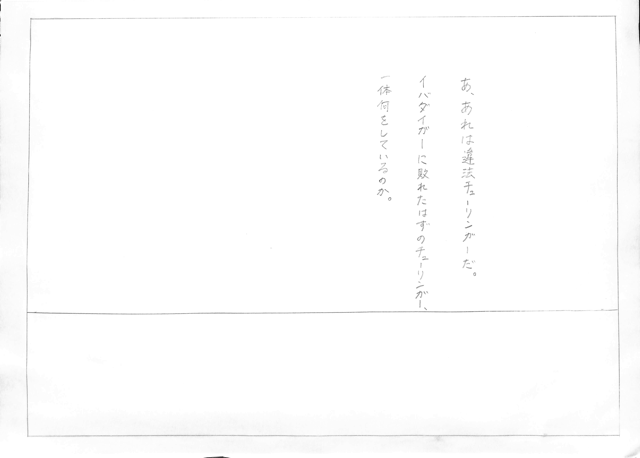 あ、あれは違法チューリンガーだ。
イバダイガーに敗れたはずのチューリンガー、
一体何をしているのか。